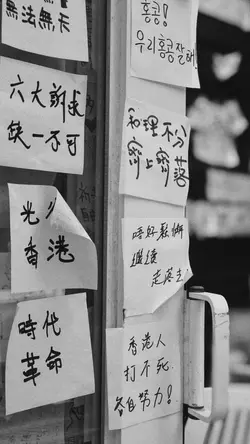 無法無天
六大訴求
缺一不可
光
香港
時代
革命
홍콩!
우리홍콩 잘해!
和理不分
齊上齊落
唔好鬆懈
繼續
香港人
打不死.
各自努力!